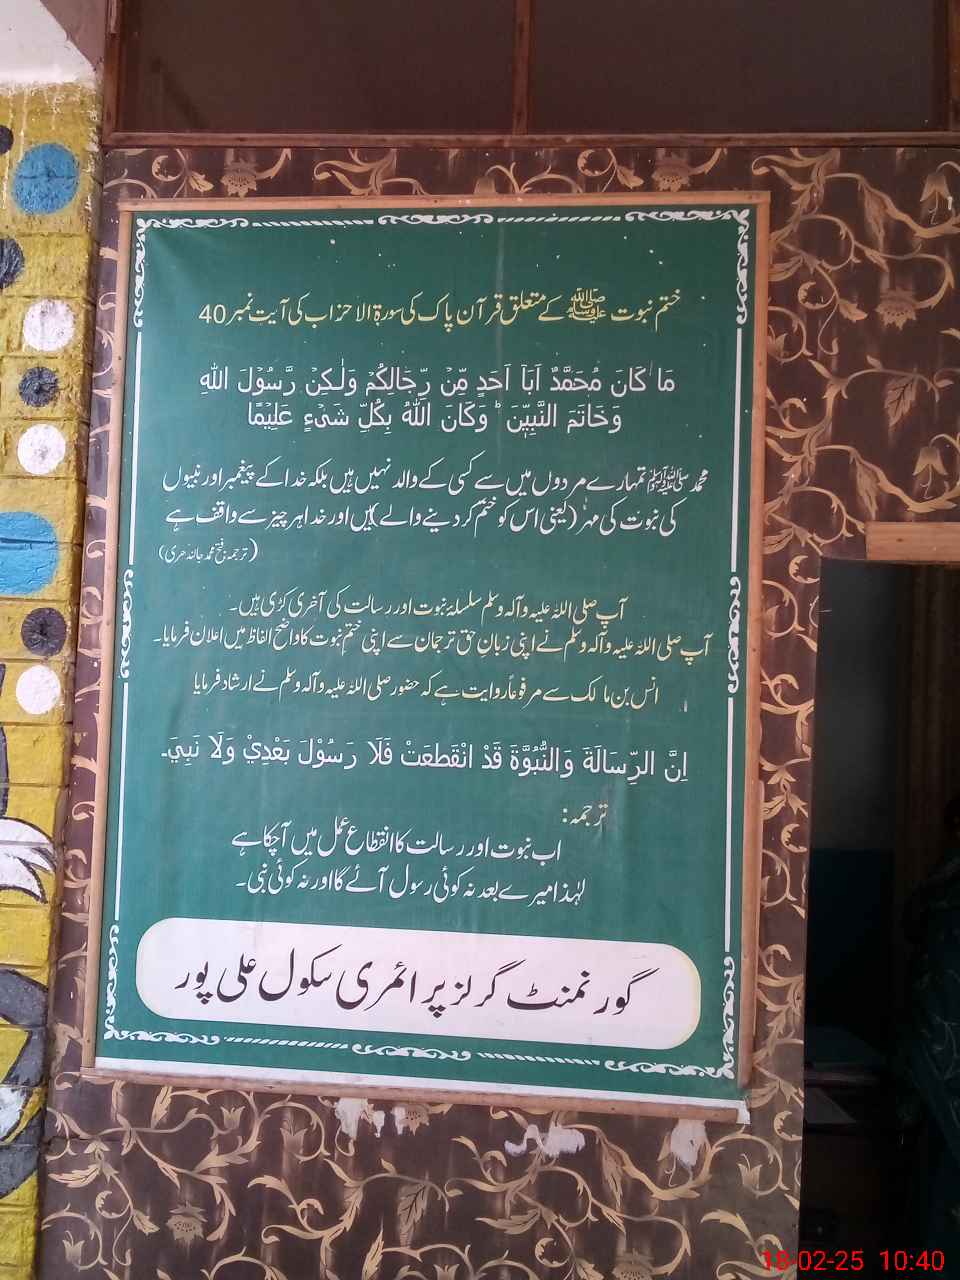 ختم نبوت ﷺ کے متعلق قرآن پاک کی سورۃ الاحزاب کی آیت نمبر 40
مَا كَانَ مُحَمَّدٌ اَبَاۤ اَحَدٍ مِّنۡ رِّجَالِكُمۡ وَلٰـكِنۡ رَّسُوۡلَ اللّٰهِ
وَخَاتَمَ النَّبِيّٖنَ ؕ وَكَانَ اللّٰهُ بِكُلِّ شَىۡءٍ عَلِيۡمًا
محمد ﷺ تمہارے مردوں میں سے کسی کے والد نہیں ہیں بلکہ خدا کے پیغمبر اور نبیوں
کی نبوت کی مہر (یعنی اس کو ختم کر دینے والے) ہیں اور خدا ہر چیز سے واقف ہے
(ترجمہ: فتح محمد جالندھری)
آپ صلی اللہ علیہ وآلہ وسلم سلسلۂ نبوت اور رسالت کی آخری کڑی ہیں۔
آپ صلی اللہ علیہ وآلہ وسلم نے اپنی زبانِ حق ترجمان سے اپنی ختم نبوت کا واضح الفاظ میں اعلان فرمایا۔
۱ انس بن مالک سے مرفوعاً روایت ہے کہ حضور صلی اللہ علیہ وآلہ وسلم نے ارشاد فرمایا
اِنَّ الرِّسَالَةَ وَالنُّبُوَّةَ قَدْ انْقَطَعَتْ فَلَا رَسُوْلَ بَعْدِيْ وَلَا نَبِيَ۔
ترجمہ:
اب نبوت اور رسالت کا انقطاع عمل میں آ چکا ہے
لہٰذا میرے بعد نہ کوئی رسول آئے گا اور نہ کوئی نبی۔
گورنمنٹ گرلز پرائمری سکول علی پور
18-02-25 10:40